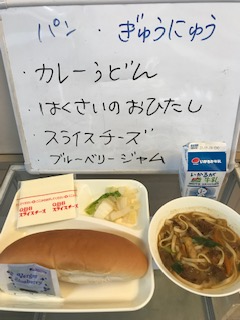 パン・ぎゅうにゅう
・カレーうどん
・はくさいのおひたし
・スライスチーズ
・ブルーベリージャム
スライスチーズ
スライスチーズ
いかるが牛乳
いかるが
牛乳